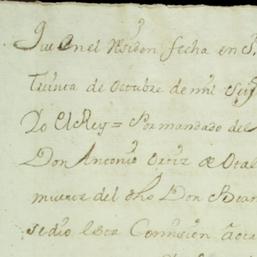 que en el Residen fecha en S.
Treinta de octubre de mil Sey
Yo El Rey = Por mandado del
Don Antonio Ortiz de Otal
muerte del dho Don
se dio esta Comision